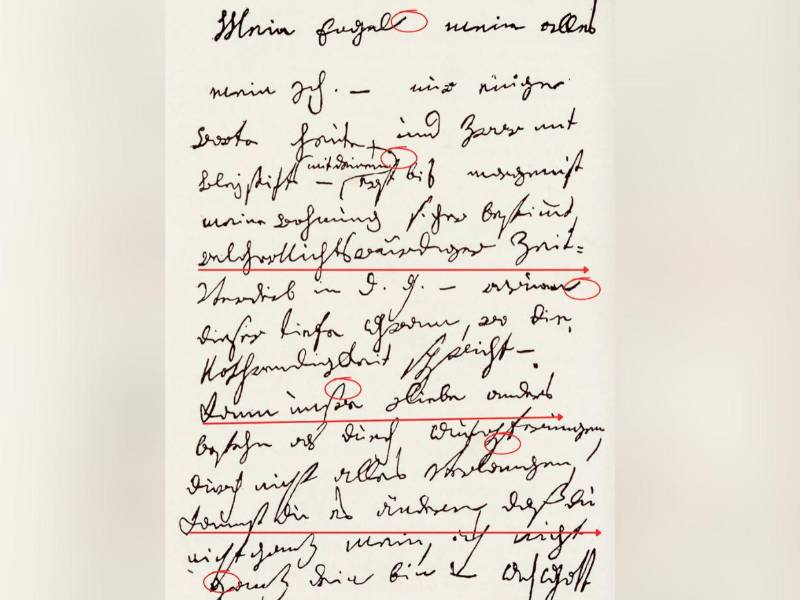 Mein Engel mein alles
mein Ich. – nur einige
Worte heute, und zwar mit
Bleistift – (mit deinem) erst bis morgen ist
meine Wohnung sicher bestimmt,
welch nichtswürdiger Zeit=
Verderb in d. g. – warum
dieser tiefe Gram, wo die
Nothwendigkeit spricht –
Kann unsre Liebe anders
bestehn als durch Aufopferungen,
durch nicht alles verlangen,
kannst du es ändern, daß du
nicht ganz mein, ich nicht
ganz dein bin – Ach Gott